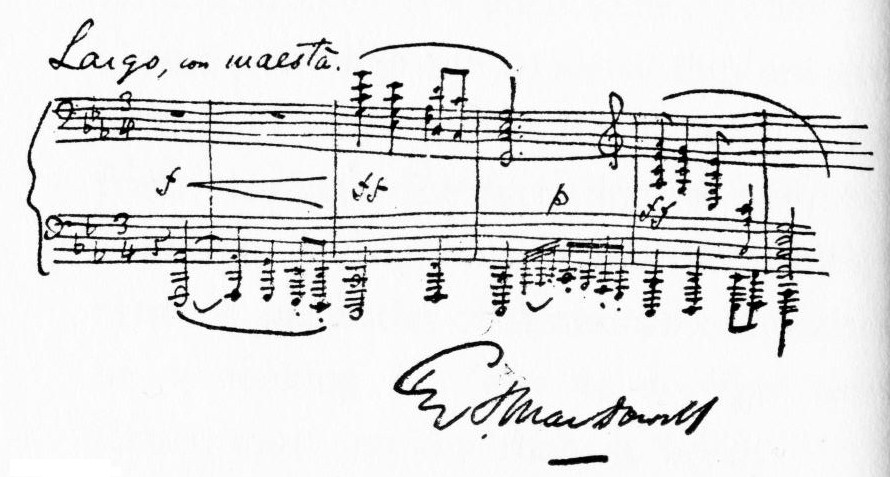 Largo, con maestà.
3 4
f ff p ff
3 4
E. A. MacDowell